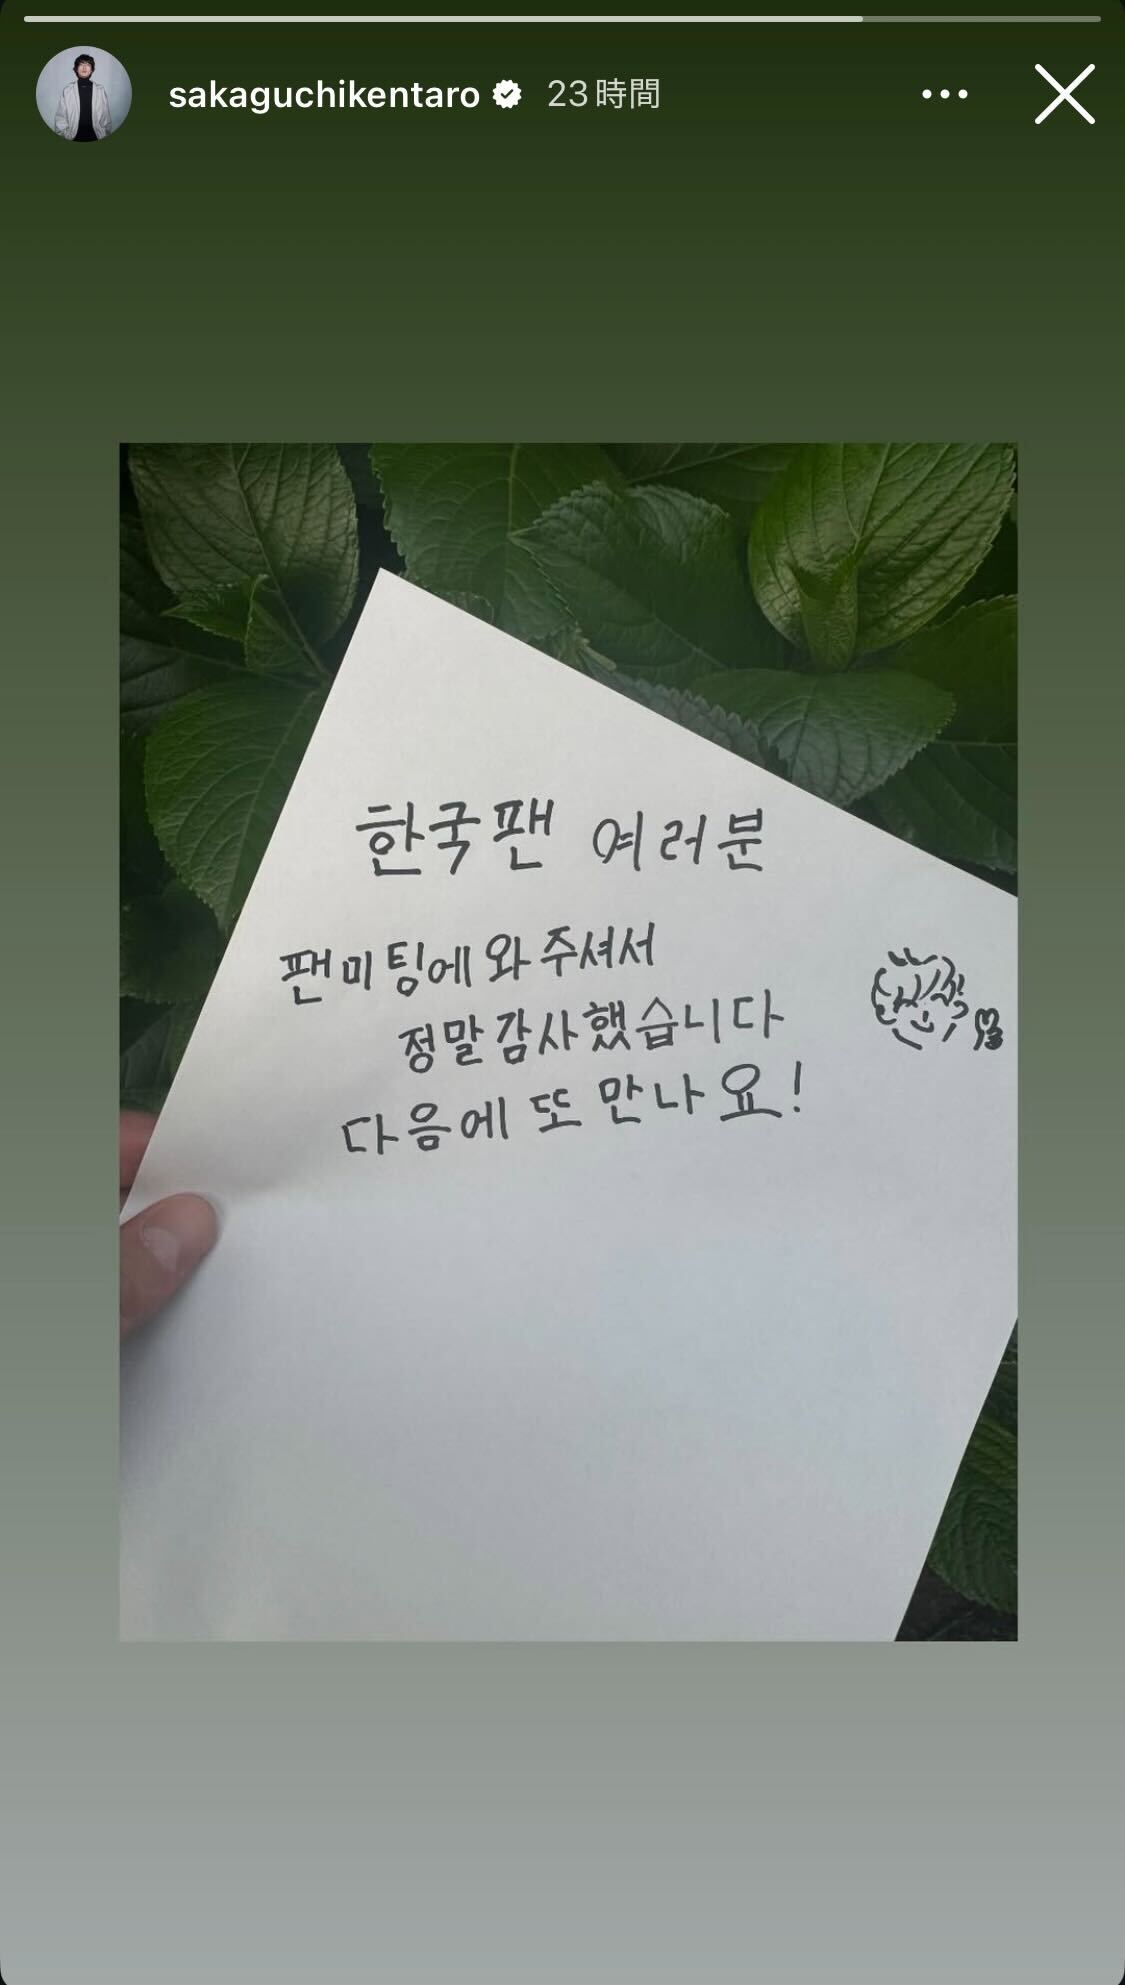 sakaguchikentaro 23時間
한국팬 여러분
팬미팅에 와주셔서
정말감사했습니다
다음에 또 만나요!